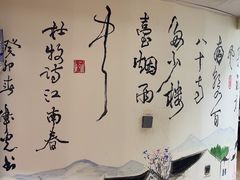 南朝四百
八十寺
多少樓
臺烟雨
中
杜牧詩江南春
癸卯春
書